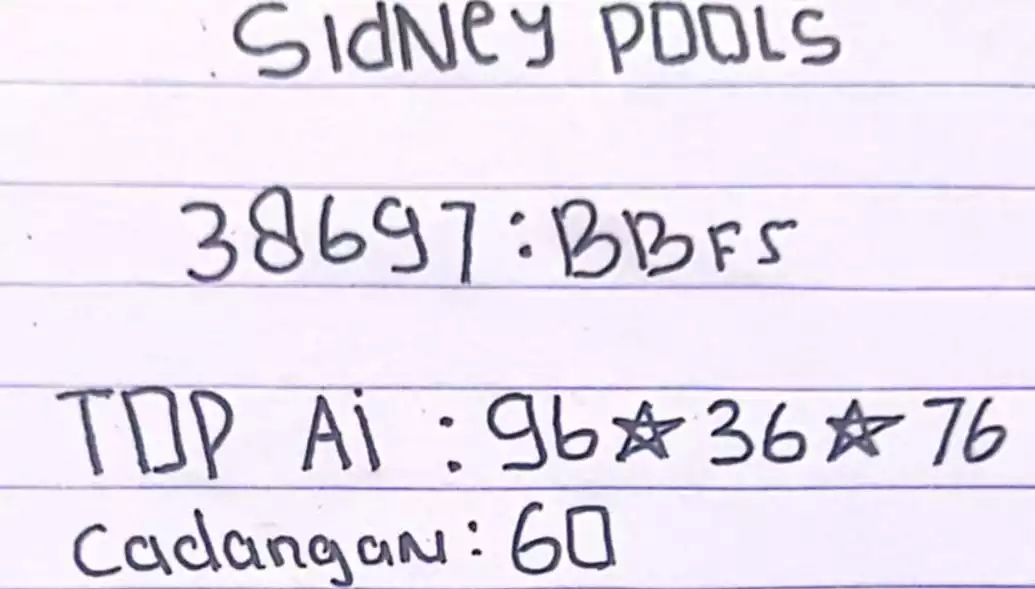 SIdNey POOLS
38697:BBFS
TOP Ai : 96☆36☆76
Cadangan: 60